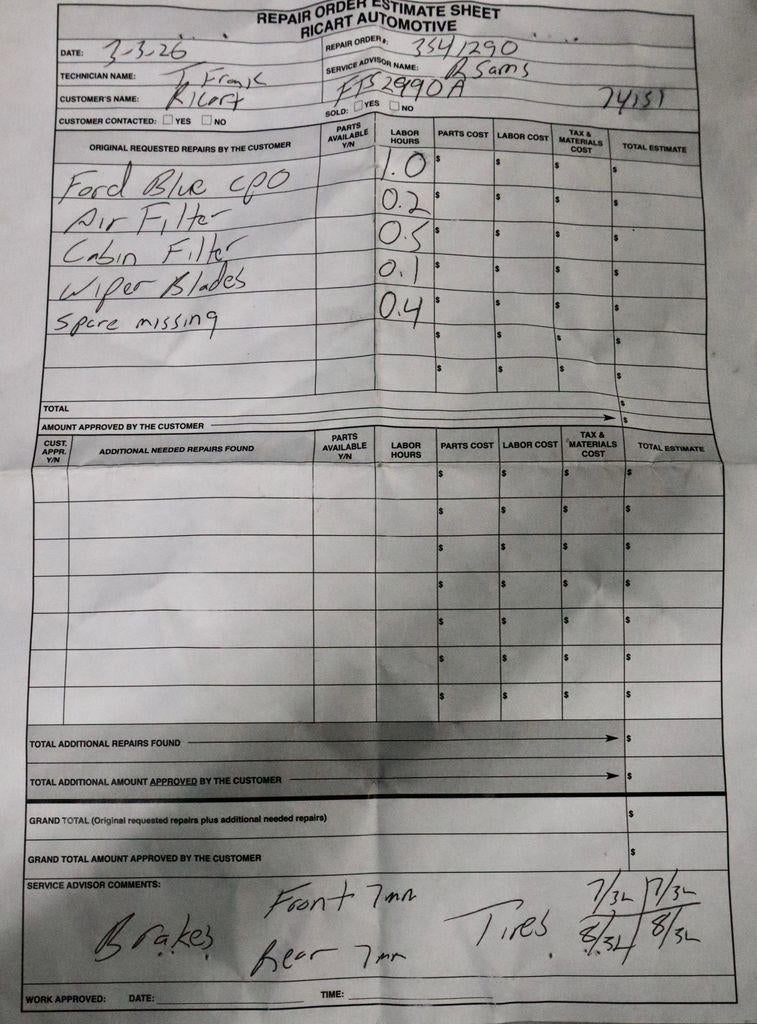 REPAIR ORDER ESTIMATE SHEET
RICART AUTOMOTIVE
DATE: 3-3-26 REPAIR ORDER#: 3541290
TECHNICIAN NAME: T. Frank SERVICE ADVISOR NAME: R Sams
CUSTOMER'S NAME: Ricart FTS2990A 74151
CUSTOMER CONTACTED: YES NO SOLD: YES NO
ORIGINAL REQUESTED REPAIRS BY THE CUSTOMER PARTS AVAILABLE Y/N LABOR HOURS PARTS COST LABOR COST TAX & MATERIALS COST TOTAL ESTIMATE
Ford Blue CPO 1.0 $ $ $ $
Air Filter 0.2 $ $ $ $
Cabin Filter 0.5 $ $ $ $
Wiper Blades 0.1 $ $ $ $
Spare missing 0.4 $ $ $ $
$ $ $ $
$ $ $ $
TOTAL $
AMOUNT APPROVED BY THE CUSTOMER $
CUST. APPR. Y/N ADDITIONAL NEEDED REPAIRS FOUND PARTS AVAILABLE Y/N LABOR HOURS PARTS COST LABOR COST TAX & MATERIALS COST TOTAL ESTIMATE
$ $ $ $
$ $ $ $
$ $ $ $
$ $ $ $
$ $ $ $
$ $ $ $
$ $ $ $
TOTAL ADDITIONAL REPAIRS FOUND $
TOTAL ADDITIONAL AMOUNT APPROVED BY THE CUSTOMER $
GRAND TOTAL (Original requested repairs plus additional needed repairs) $
GRAND TOTAL AMOUNT APPROVED BY THE CUSTOMER $
SERVICE ADVISOR COMMENTS:
Front 7mm 7/32 7/32
Brakes Tires
Rear 7mm 8/32 8/32
WORK APPROVED: DATE: TIME: